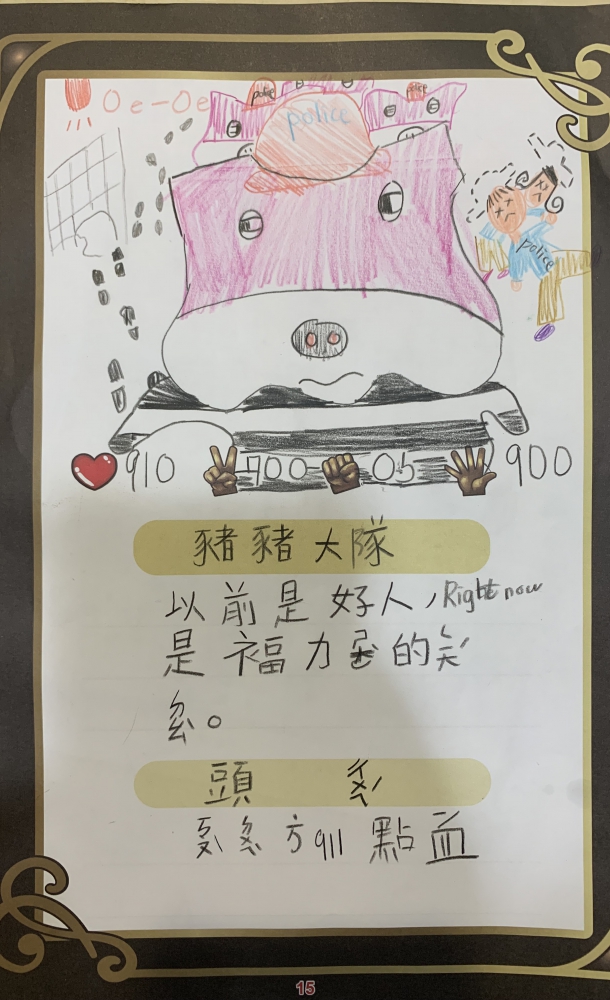 Oe-Oe
police
police
police
police
910 700 05 900
豬豬大隊
以前是好人,Right now
是福力 的
頭
方911點血
15